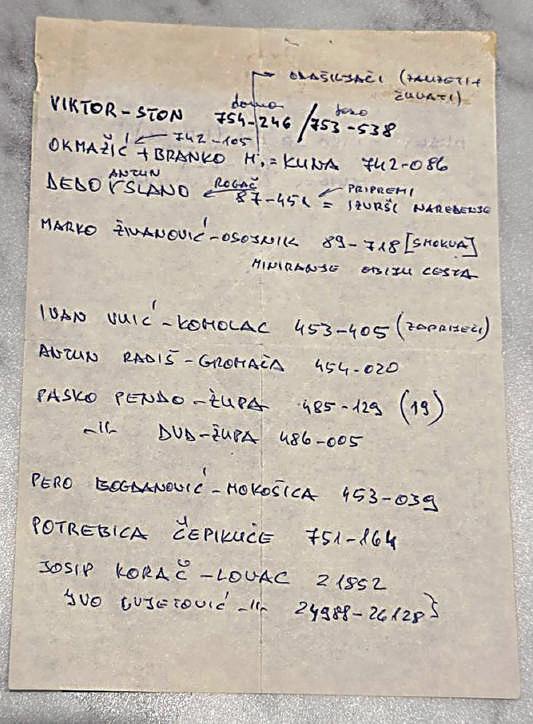 ODAŠILJAČI (ZAUZETI +
ČUVATI)
doma
VIKTOR - STON 754-246 / 753-538
OKMAŽIĆ 742-105 + BRANKO M. = KUNA 742-086
ANTUN ROGAČ PRIPREMI
DEDO SLANO 87-451 = IZVRŠI NAREĐENJE
MARKO ŽIVANOVIĆ - OSOJNIK 89-718 [SMOKVA]
MINIRANJE OBIJU CESTA
IVAN VUIĆ - KOMOLAC 453-405 (ZAPRIJEČI)
ANTUN RADIŠ - GROMAČA 454-020
PASKO PENDO - ŽUPA 485-129 (19)
-II- DUD - ŽUPA 486-005
PERO BOGDANOVIĆ - MOKOŠICA 453-039
POTREBICA ČEPIKUĆE 751-164
JOSIP KORAČ - LOVAC 21852
IVO CVJETOVIĆ -II- 24988-26128}